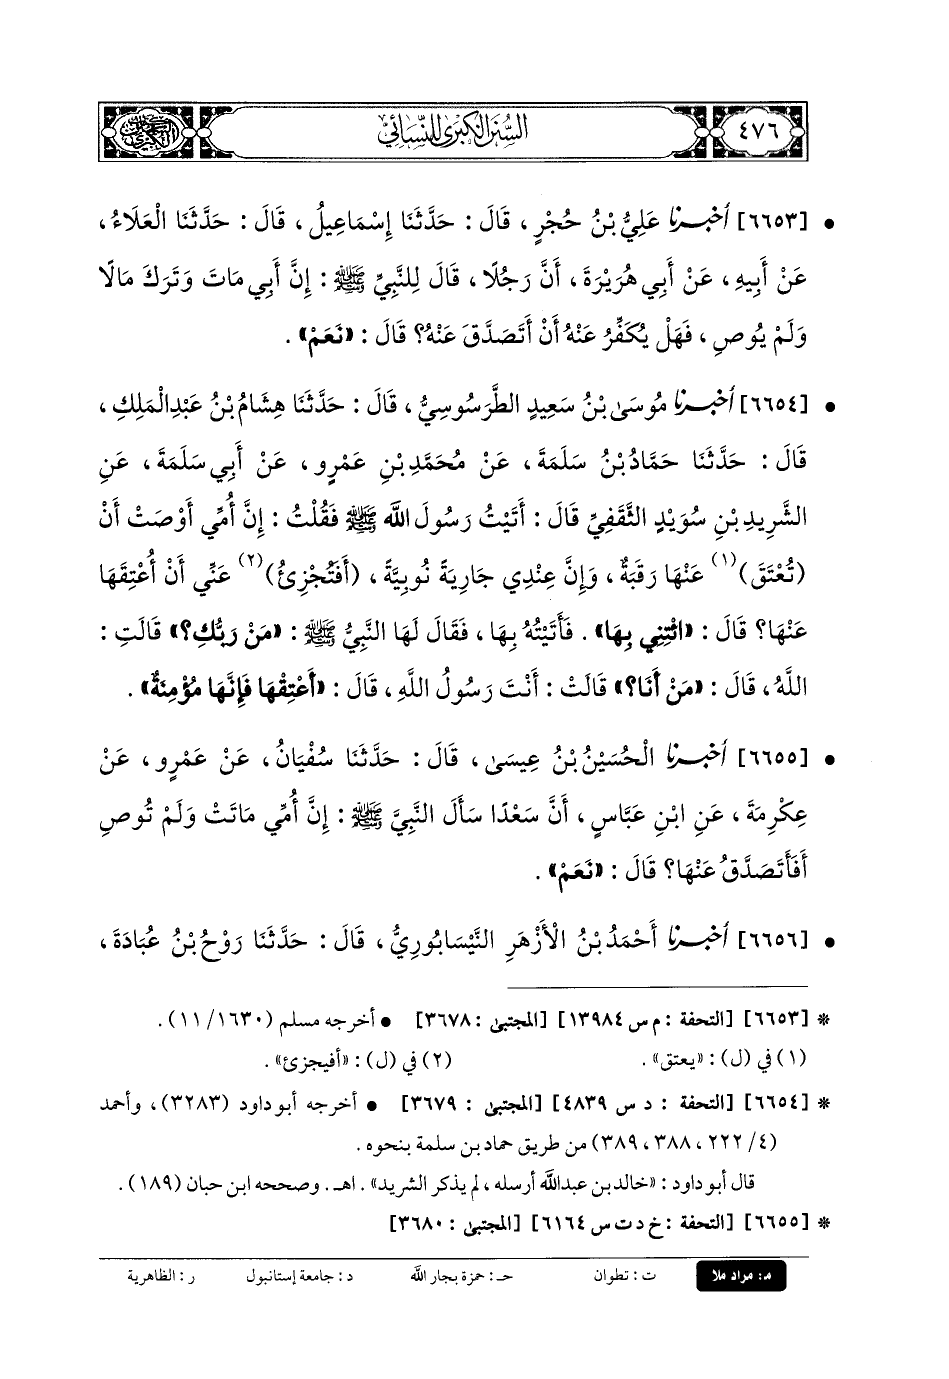 ٤٧٦ السنن الكبرى للنسائي
• [٦٦٥٣] أخبرنا عَلِيُّ بْنُ حُجْرٍ ، قَالَ : حَدَّثَنَا إِسْمَاعِيلُ ، قَالَ : حَدَّثَنَا الْعَلَاءُ ،
عَنْ أَبِيهِ ، عَنْ أَبِي هُرَيْرَةَ ، أَنَّ رَجُلًا ، قَالَ لِلنَّبِيِّ ﷺ : إِنَّ أَبِي مَاتَ وَتَرَكَ مَالًا
وَلَمْ يُوصِ ، فَهَلْ يُكَفِّرُ عَنْهُ أَنْ أَتَصَدَّقَ عَنْهُ؟ قَالَ : «نَعَمْ» .
• [٦٦٥٤] أخبرنا مُوسَى بْنُ سَعِيدٍ الطَّرَسُوسِيُّ ، قَالَ : حَدَّثَنَا هِشَامُ بْنُ عَبْدِالْمَلِكِ ،
قَالَ : حَدَّثَنَا حَمَّادُ بْنُ سَلَمَةَ ، عَنْ مُحَمَّدِ بْنِ عَمْرٍو ، عَنْ أَبِي سَلَمَةَ ، عَنِ
الشَّرِيدِ بْنِ سُوَيْدٍ الثَّقَفِيِّ قَالَ : أَتَيْتُ رَسُولَ اللَّه ﷺ فَقُلْتُ : إِنَّ أُمِّي أَوْصَتْ أَنْ
(تُعْتَقَ)(١) عَنْهَا رَقَبَةٌ ، وَإِنَّ عِنْدِي جَارِيَةً نُوبِيَّةً ، (أَفَتُجْزِئُ)(٢) عَنِّي أَنْ أُعْتِقَهَا
عَنْهَا؟ قَالَ : «ائْتِنِي بِهَا» . فَأَتَيْتُهُ بِهَا ، فَقَالَ لَهَا النَّبِيُّ ﷺ : «مَنْ رَبُّكِ؟» قَالَتِ :
اللَّهُ ، قَالَ : «مَنْ أَنَا؟» قَالَتْ : أَنْتَ رَسُولُ اللَّهِ ، قَالَ : «أَعْتِقْهَا فَإِنَّهَا مُؤْمِنَةٌ» .
• [٦٦٥٥] أخبرنا الْحُسَيْنُ بْنُ عِيسَى ، قَالَ : حَدَّثَنَا سُفْيَانُ ، عَنْ عَمْرٍو ، عَنْ
عِكْرِمَةَ ، عَنِ ابْنِ عَبَّاسٍ ، أَنَّ سَعْدًا سَأَلَ النَّبِيَّ ﷺ : إِنَّ أُمِّي مَاتَتْ وَلَمْ تُوصِ
أَفَأَتَصَدَّقُ عَنْهَا؟ قَالَ : «نَعَمْ» .
• [٦٦٥٦] أخبرنا أَحْمَدُ بْنُ الْأَزْهَرِ النَّيْسَابُورِيُّ ، قَالَ : حَدَّثَنَا رَوْحُ بْنُ عُبَادَةَ ،
* [٦٦٥٣] [التحفة : م س ١٣٩٨٤] [المجتبى : ٣٦٧٨] • أخرجه مسلم (١٦٣٠/ ١١) .
(١) في (ل) : «يعتق» . (٢) في (ل) : «أفيجزئ» .
* [٦٦٥٤] [التحفة : د س ٤٨٣٩] [المجتبى : ٣٦٧٩] • أخرجه أبو داود (٣٢٨٣) ، وأحمد
(٤/ ٢٢٢ ، ٣٨٨ ، ٣٨٩) من طريق حماد بن سلمة بنحوه .
قال أبو داود : «خالد بن عبدالله أرسله ، لم يذكر الشريد» . اهـ . وصححه ابن حبان (١٨٩) .
* [٦٦٥٥] [التحفة : خ د ت س ٦١٦٤] [المجتبى : ٣٦٨٠]
م: مراد ملا ت : تطوان حـ : حمزة بجار الله د : جامعة إستانبول ر : الظاهرية